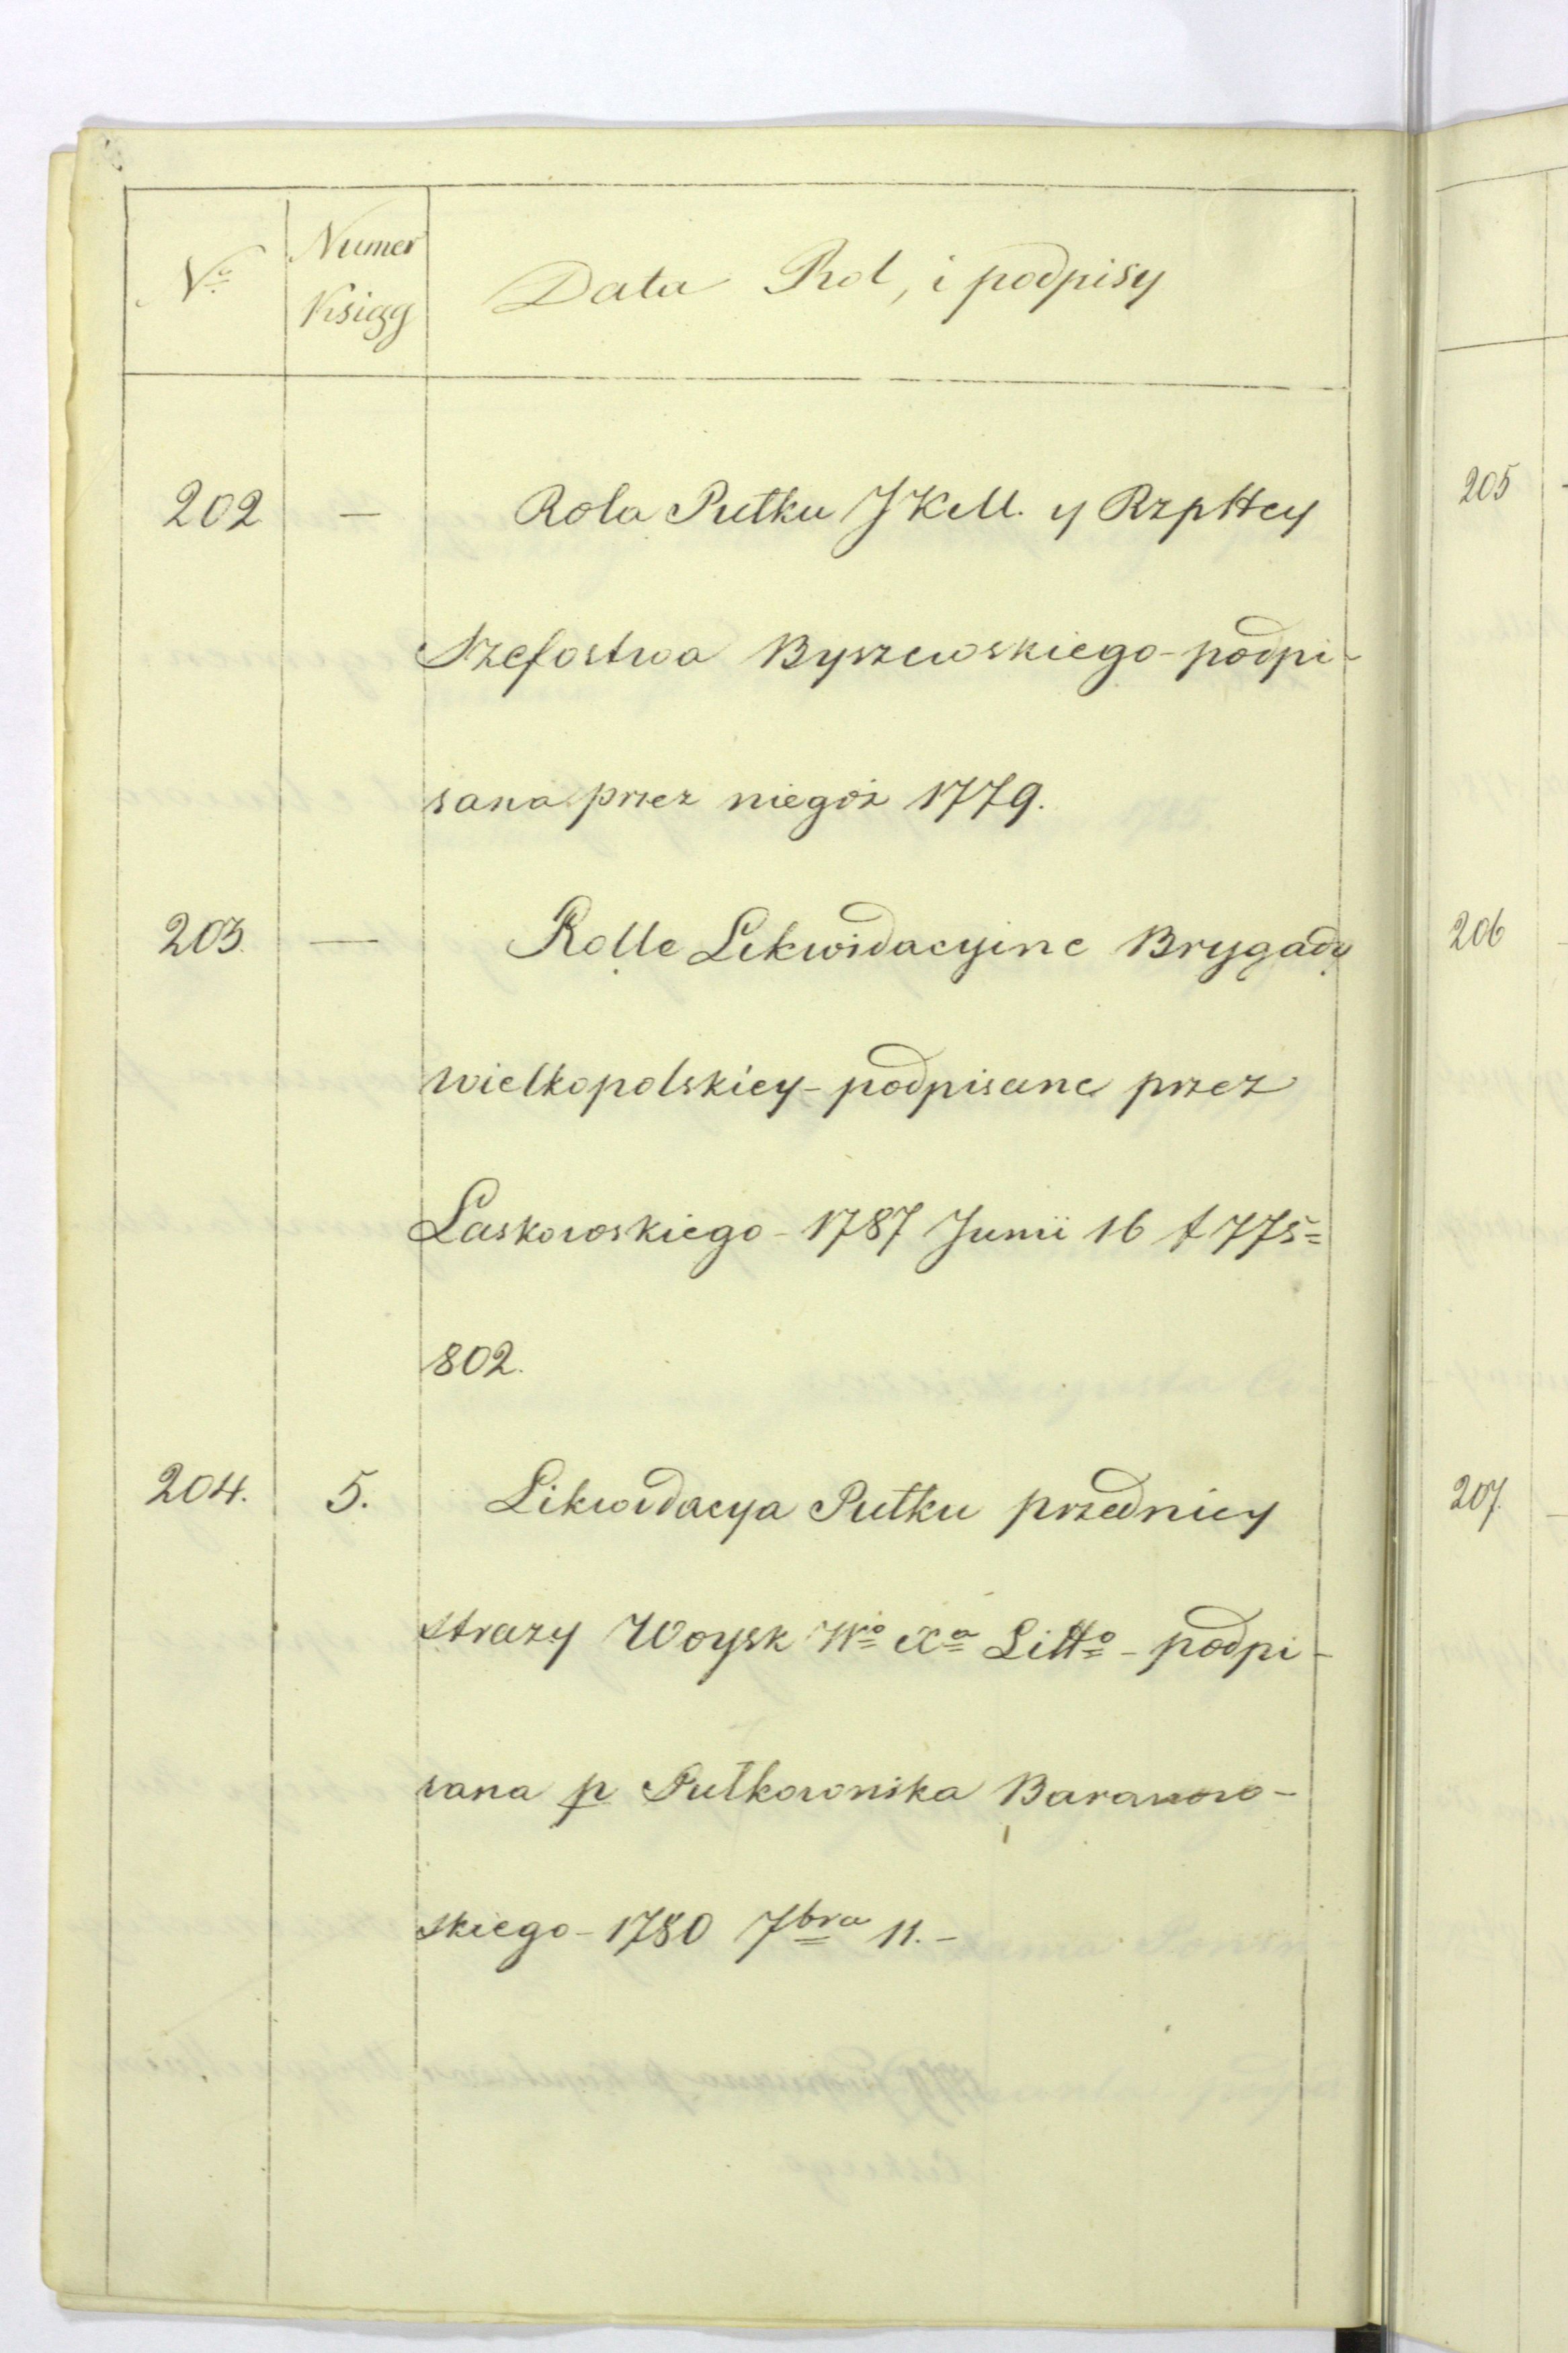 No Numer Księgg Data Rol, i podpisy
202 — Rola Pułku JKM. y Rzplttey
Szefostwa Byszewskiego - podpi-
sana przez niegóż 1779.
203. — Rolle Likwidacyine Brygady
wielkopolskiey - podpisane przez
Laskowskiego - 1787 Junii 16 f 775=
802.
204. 5. Likwidacya Pułku przedniey
strazy Woysk Wo Xa Litto - podpi-
sana p Pułkownika Baranow-
skiego - 1780 7bra 11. -
205
206
207.